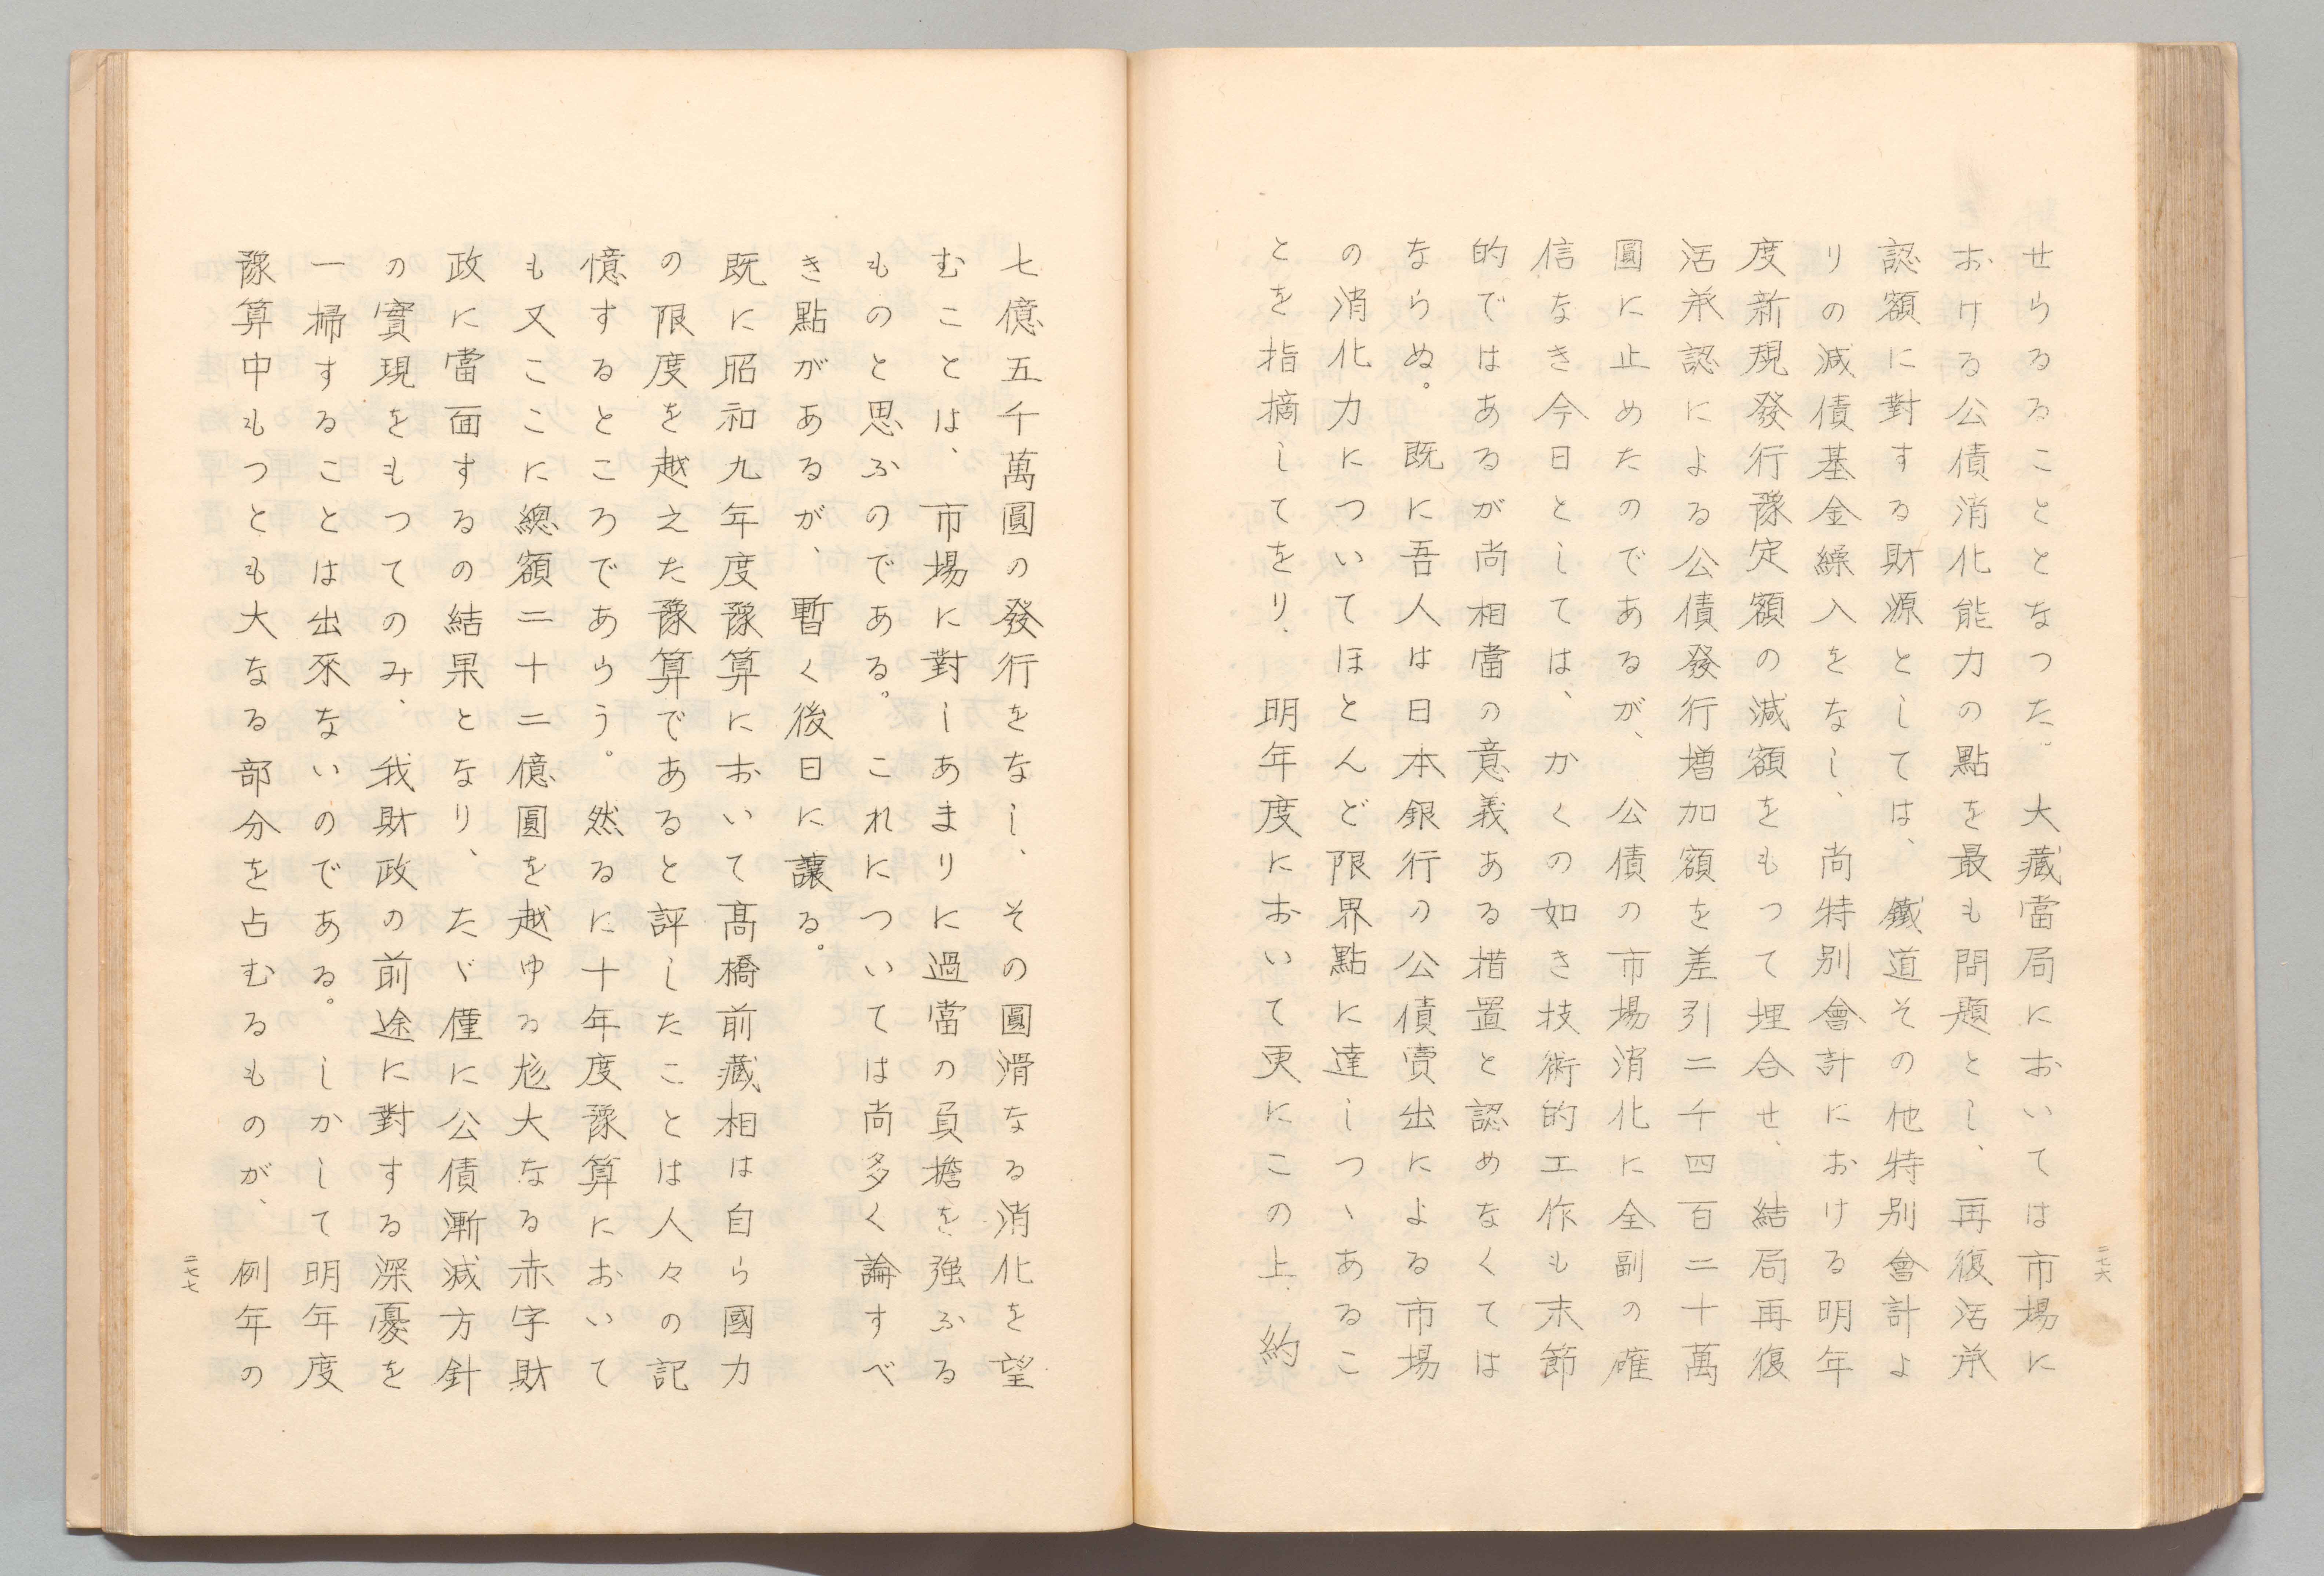 二七六
せらるることとなつた。大藏當局においては市場に
おける公債消化能力の點を最も問題とし、再復活承
認額に對する財源としては、鐵道その他特別會計よ
りの減債基金繰入をなし、尚特別會計における明年
度新規發行豫定額の減額をもつて埋合せ、結局再復
活承認による公債發行增加額を差引二千四百二十萬
圓に止めたのであるが、公債の市場消化に全副の確
信なき今日としては、かくの如き技術的工作も末節
的ではあるが尚相當の意義ある措置と認めなくては
ならぬ。既に吾人は日本銀行の公債賣出による市場
の消化力についてほとんど限界點に達しつゝあるこ
とを指摘してをり、明年度において更にこの上、約
七億五千萬圓の發行をなし、その圓滑なる消化を望
むことは、市場に對しあまりに過當の負擔を強ふる
ものと思ふのである。これについては尚多く論すべ
き點があるが、暫く後日に讓る。
既に昭和九年度豫算において髙橋前藏相は自ら國力
の限度を越えた豫算であると評したことは人々の記
憶するところであらう。然るに十年度豫算において
も又ここに總額二十二億圓を越ゆる尨大なる赤字財
政に當面するの結果となり、たゞ僅に公債漸減方針
の實現をもつてのみ、我財政の前途に對する深憂を
一掃することは出來ないのである。しかして明年度
豫算中もつとも大なる部分を占むるものが、例年の
二七七